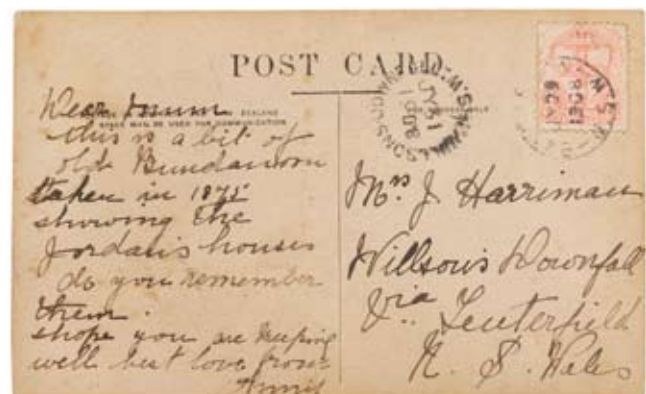 POST CARD
Dear Mum
this is a bit of
olde Bundanoon
taken in 1875
showing the
Jordan's houses
do you remember
them.
hope you are keeping
well best love from
ZEALAND
SPACE MAY BE USED FOR COMMUNICATION
Mrs. J. Harriman
Willson's Downfall
Via Tenterfield
N. S. Wales